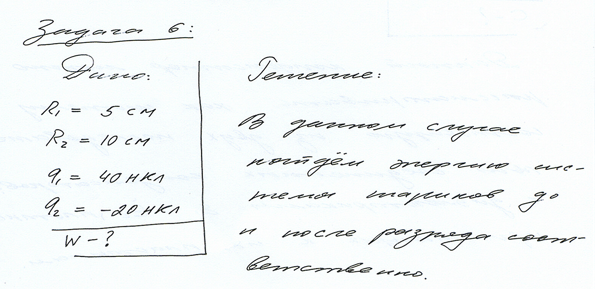 Задача 6:
Дано:
R1 = 5 см
R2 = 10 см
q1 = 40 нкл
q2 = -20 нкл
W - ?
Решение:
В данном случае
найдём энергию сис-
темы шариков до
и после разряда соот-
ветственно.